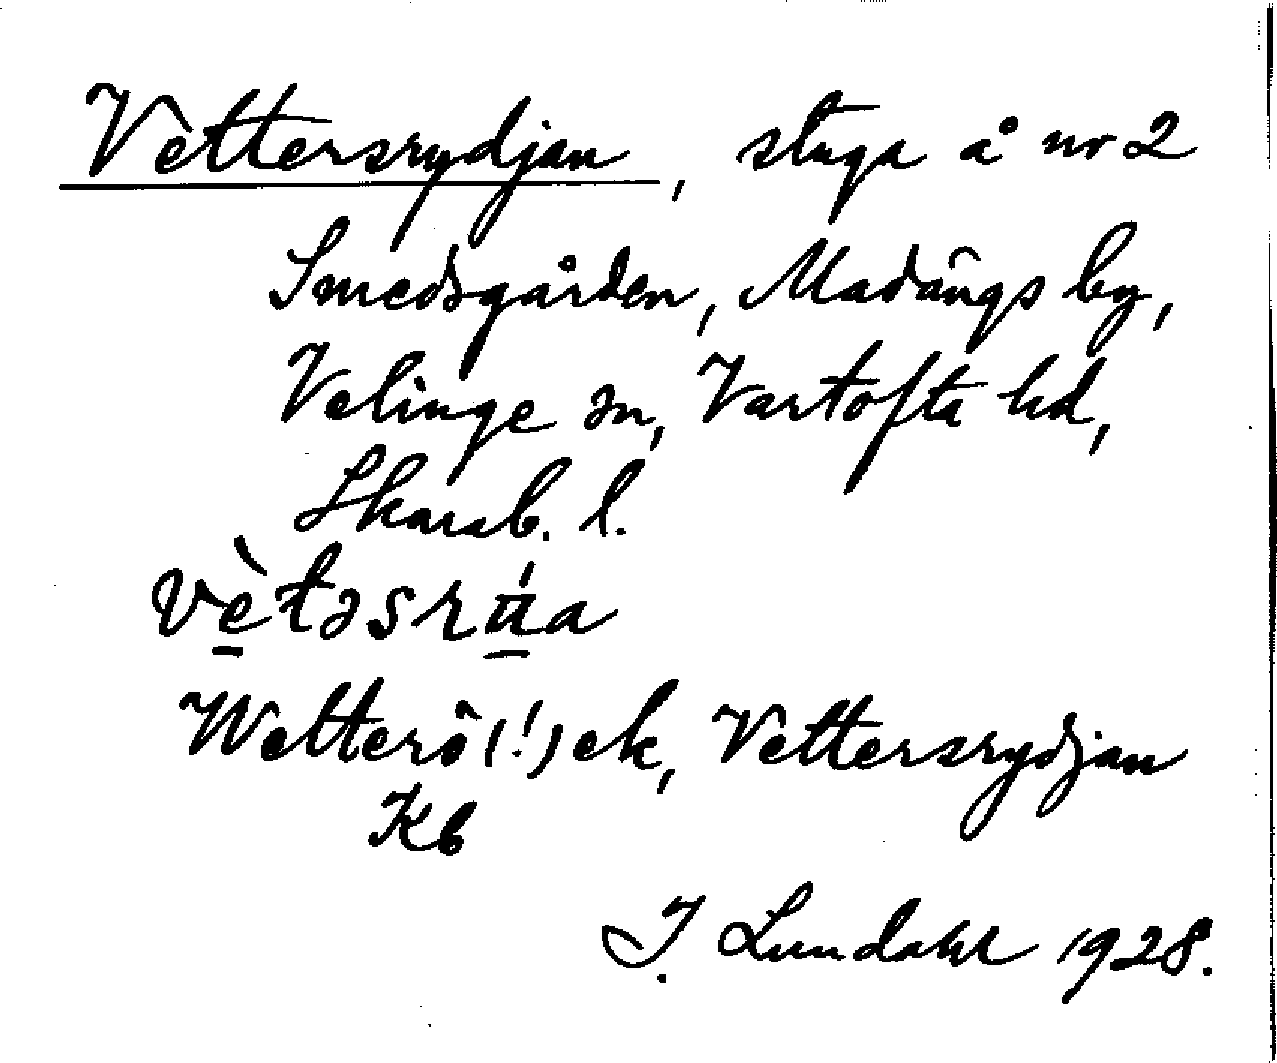 Vettersrydjan, stuga å nr 2
Smedsgården, Madängs by,
Velinge sn, Vartofta hd,
Skarab. l.
vè̠təsrú̠a
Wetterö(!) ek, Vettersrydjan
Kb
I. Lundahl 1928.